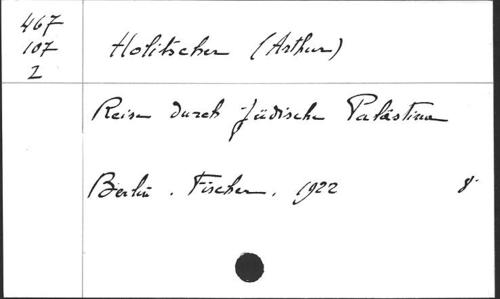 467
107
2
Holitscher (Arthur)
Reise durch jüdische Palästina
Berlin. Fischer. 1922 8.